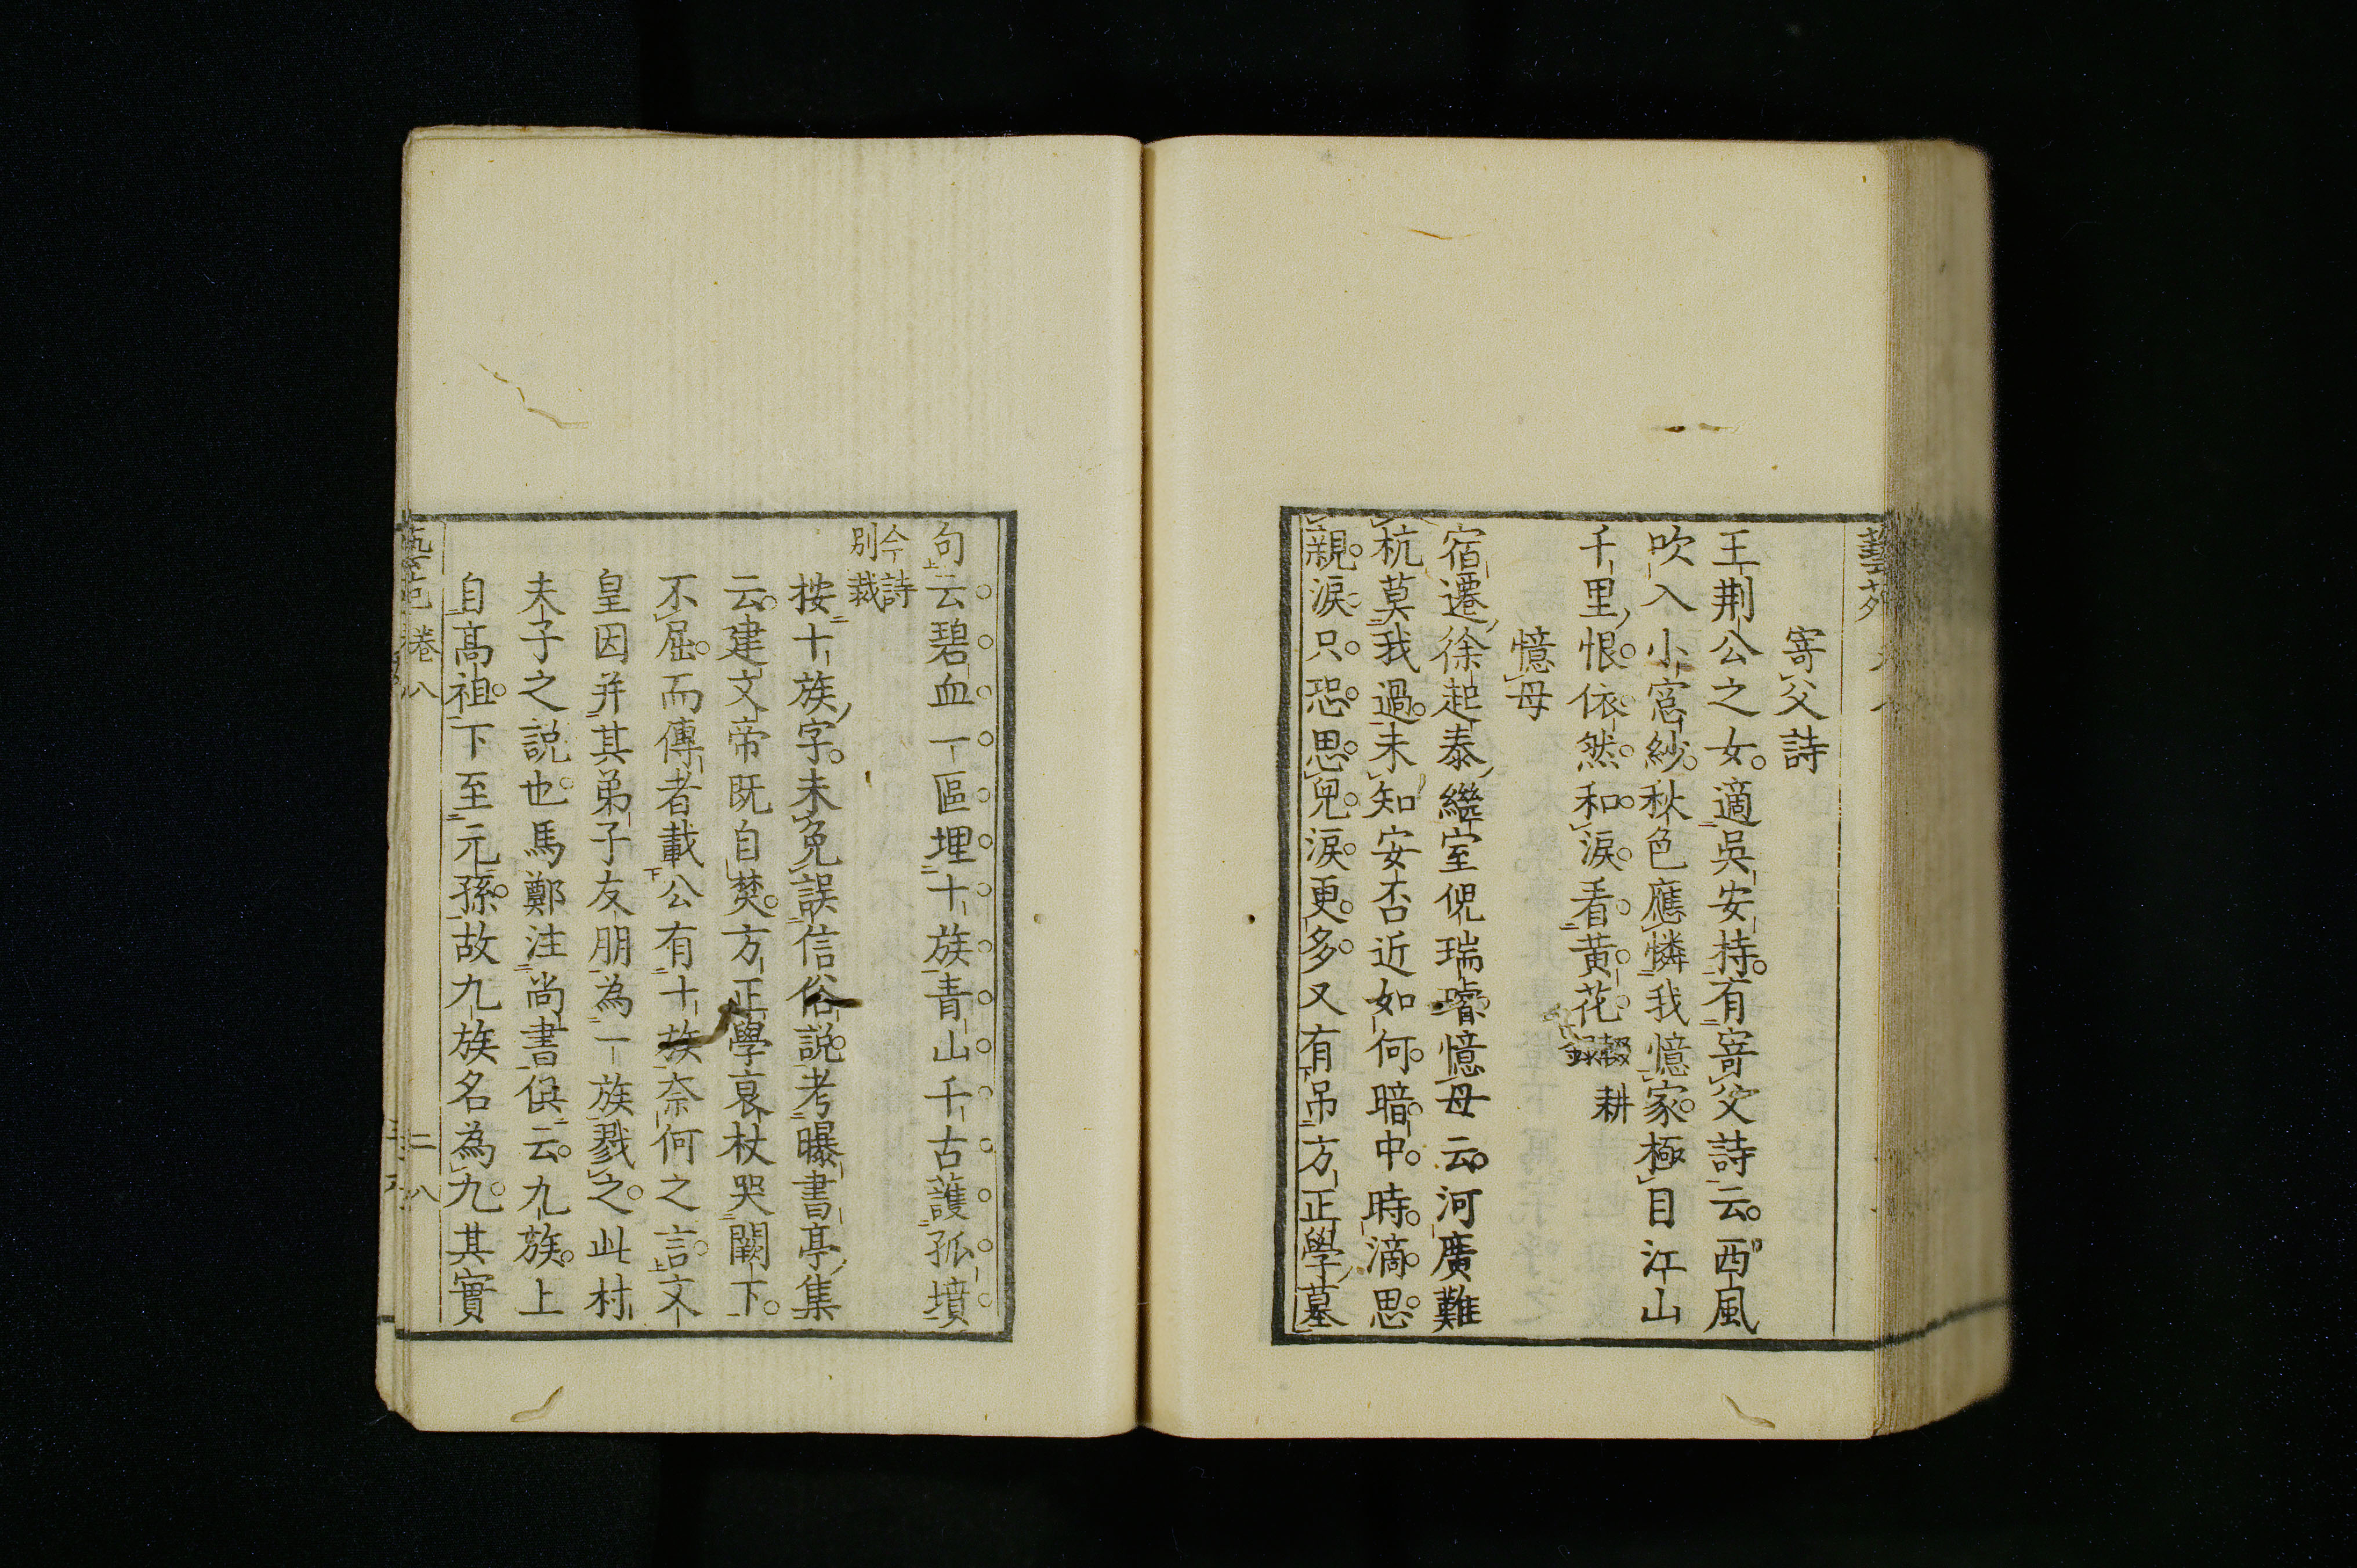 藝苑
寄父詩
王荆公之女。適吳安持。有寄父詩云。西風
吹入小窓紗。秋色應憐我憶家。極目江山
千里恨。依然和淚看黄花。輟耕
錄
憶母
宿遷徐起泰繼室倪瑞璿憶母云。河廣難
杭莫我過。未知安否近如何。暗中時滴思
親淚只恐思兒淚更多又有吊方正學墓
句云碧血一區埋十族青山千古護孤墳
今詩
別裁
按十族字。未免誤信俗說。考曝書亭集
云。建文帝既自焚。方正學哀杖哭闕下。
不屈。而傳者載公有十族奈何之言。文
皇因并其弟子友朋為一族戮之。此村
夫子之說也。馬鄭注尚書俱云。九族。上
自高祖。下至元孫。故九族名為九。其實
藝苑 卷八 二八